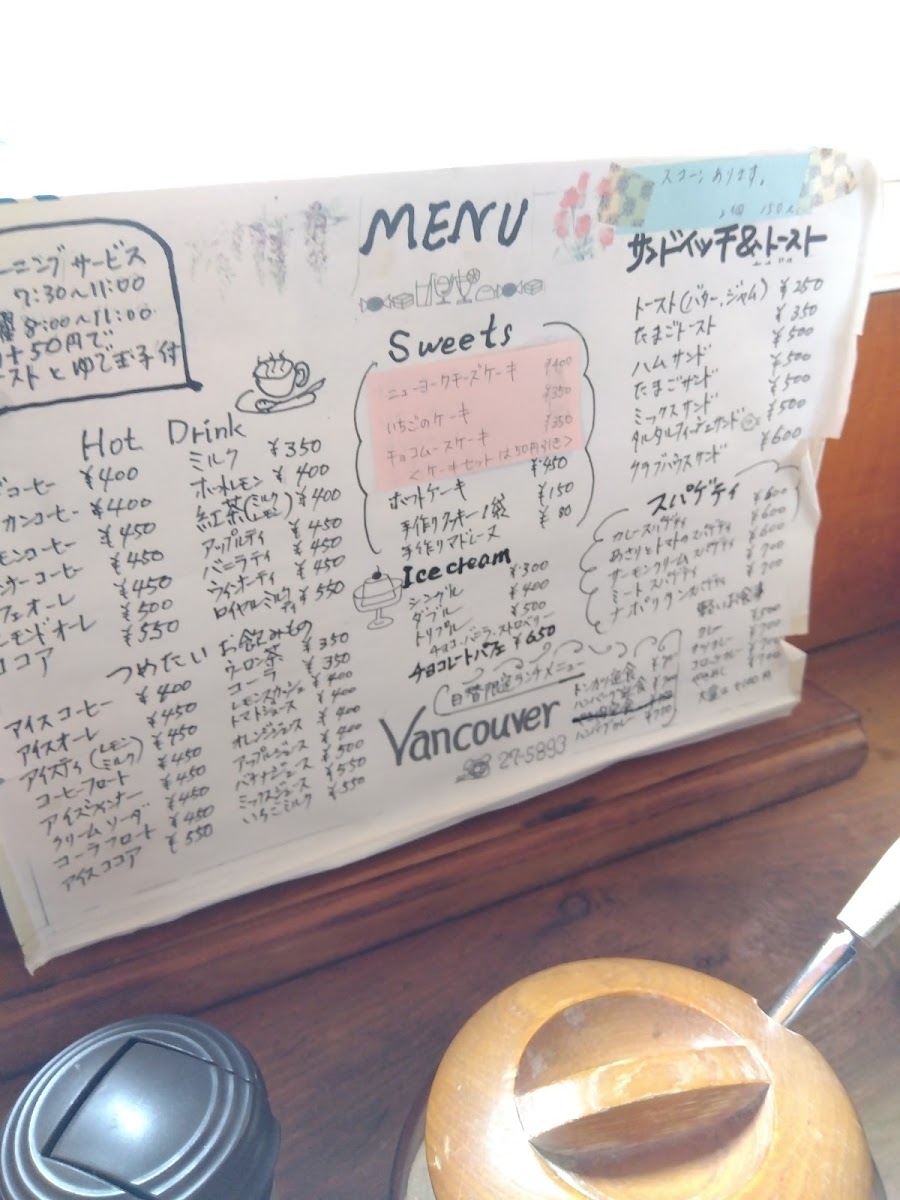 MENU
スコーンあります。
2個 150
ーニングサービス
7:30～11:00
曜 8:00～11:00
+50円で
ーストとゆで玉子付
Hot Drink
コーヒー ¥400
カンコーヒー ¥400
モンコーヒー ¥450
ンナーコーヒー ¥450
フェオーレ ¥450
ーモンドオーレ ¥500
ココア ¥550
ミルク ¥350
ホットレモン ¥400
紅茶(ミルク レモン) ¥400
アップルティ ¥450
バニラティ ¥450
ウィンナーティ ¥450
ロイヤルミルクティ ¥550
つめたいお飲みもの
アイスコーヒー ¥400
アイスオーレ ¥450
アイスティ(レモン ミルク) ¥450
コーヒーフロート ¥450
アイスウィンナー ¥450
クリームソーダ ¥450
コーラフロート ¥450
アイスココア ¥550
ウーロン茶 ¥350
コーラ ¥350
レモンスカッシュ ¥400
トマトジュース ¥400
オレンジジュース ¥400
アップルジュース ¥400
バナナジュース ¥500
ミックスジュース ¥550
いちごミルク ¥550
Sweets
ニューヨークチーズケーキ ¥400
いちごのケーキ ¥350
チョコムースケーキ ¥350
<ケーキセットは50円引き>
ホットケーキ ¥450
手作りクッキー1袋 ¥150
手作りマドレーヌ ¥80
Ice cream
シングル ¥300
ダブル ¥400
トリプル ¥500
チョコ・バニラ・ストロベリー
チョコレートパフェ ¥650
サンドイッチ&トースト
トースト(バター、ジャム) ¥250
たまごトースト ¥350
ハムサンド ¥500
たまごサンド ¥500
ミックスサンド ¥500
タルタルフィッシュサンド ¥500
クラブハウスサンド ¥600
スパゲティ
カレースパゲティ ¥600
あさりとトマトのスパゲティ ¥600
サーモンクリームスパゲティ ¥600
ミートスパゲティ ¥700
ナポリタンスパゲティ ¥700
軽いお食事
カレー ¥500
カツカレー ¥700
コロッケカレー ¥700
やきめし ¥700
大盛は ¥100円
日替限定ランチメニュー
トンカツ定食
ハンバーグ定食
ハンバーグカレー ¥700
Vancouver
27-5893